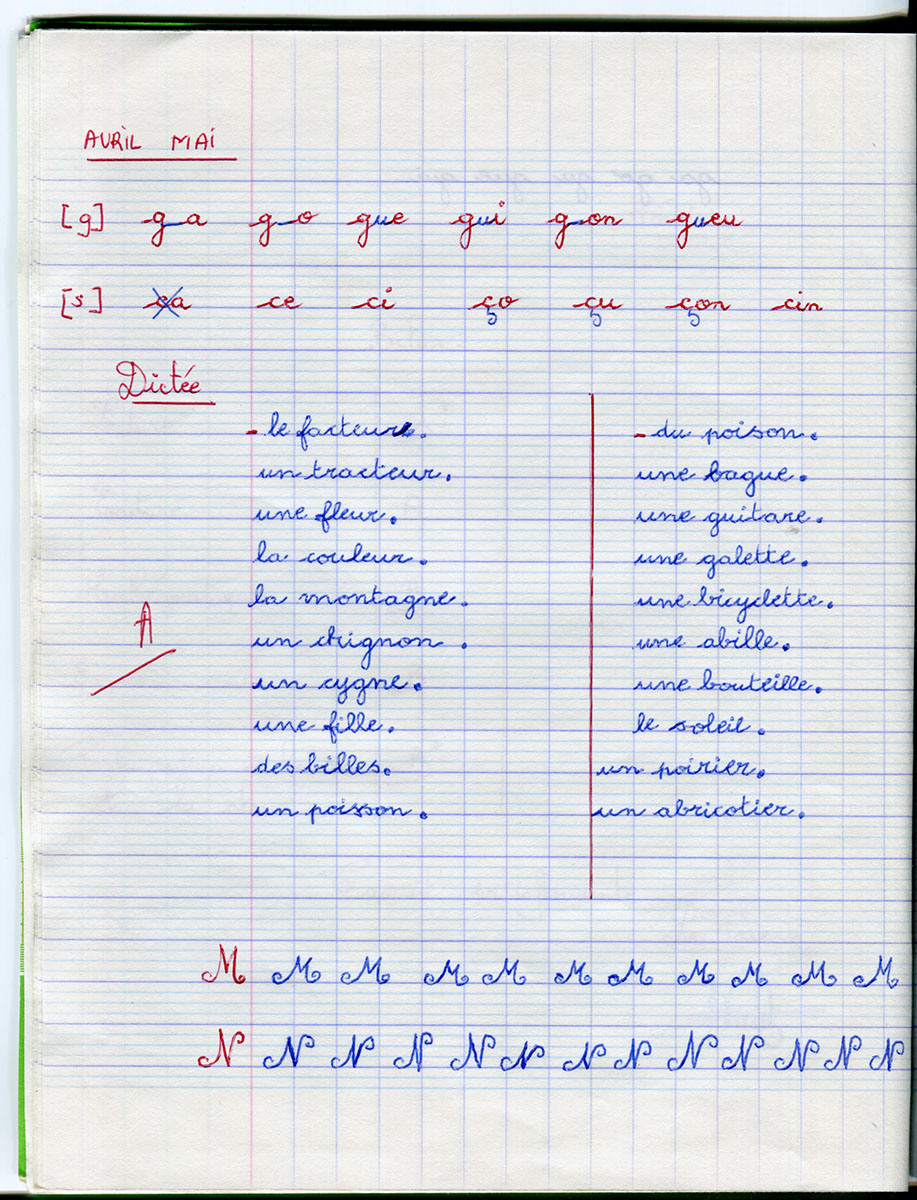 AVRIL MAI
[g] ga go gue gui gon gueu
[s] ça ce ci ço çu çon cin
Dictée
- le facteur.
un tracteur.
une fleur.
la couleur.
la montagne.
un chignon.
un cygne.
une fille.
des billes.
un poisson.
- du poison.
une bague.
une guitare.
une galette.
une bicyclette.
une abille.
une bouteille.
le soleil.
un poirier.
un abricotier.
A
M M M M M M M M M M M
N N N N N N N N N N N N